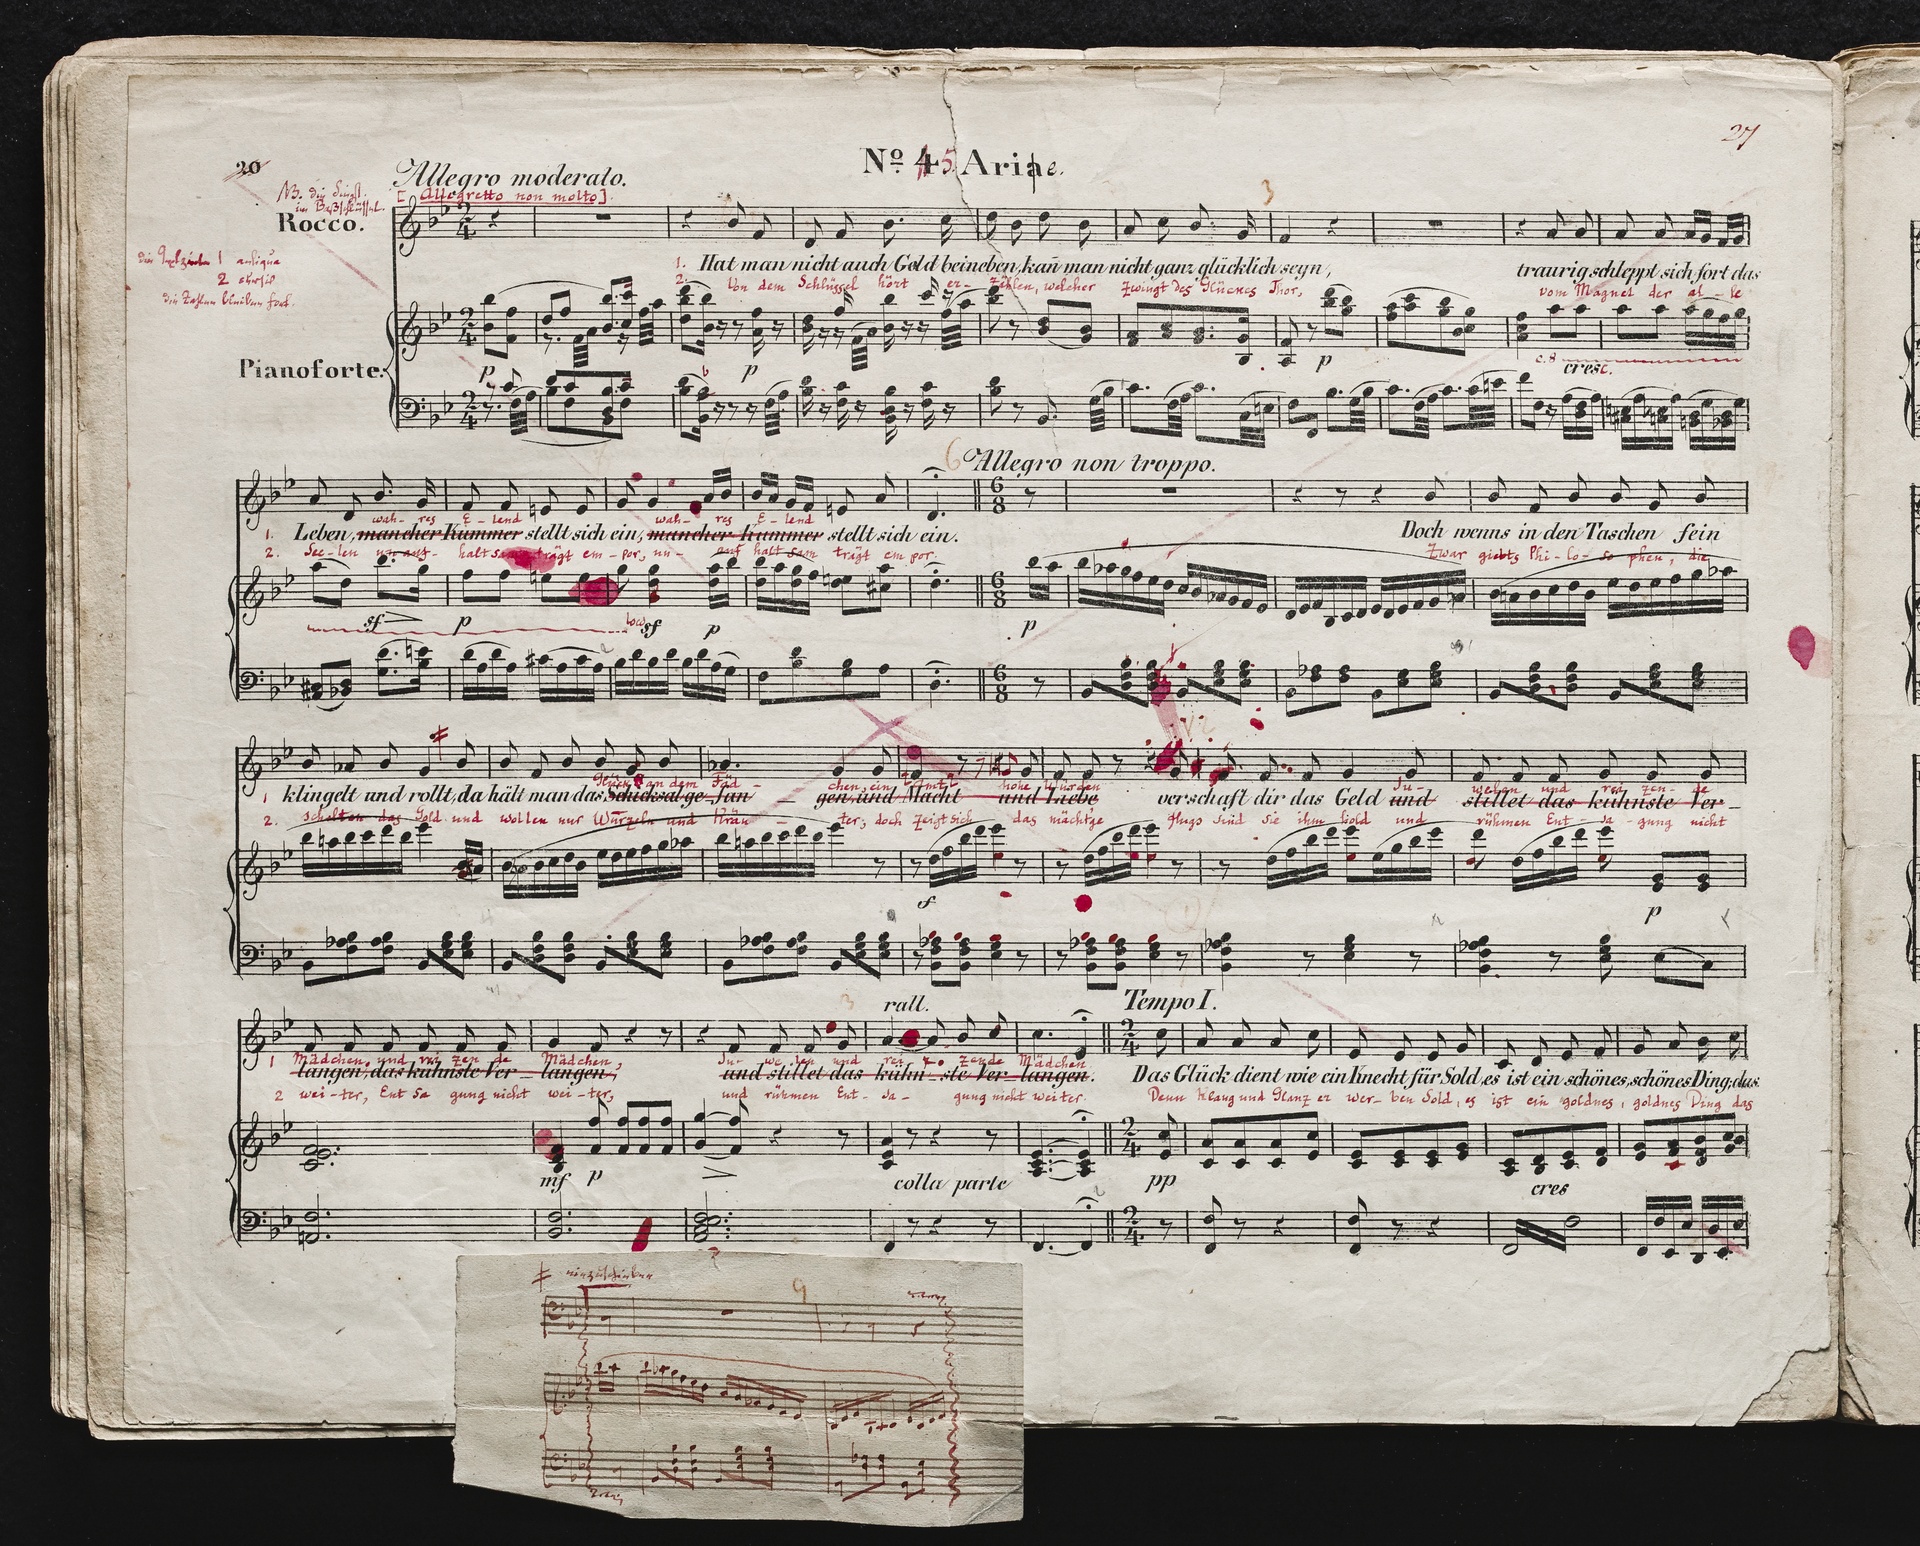 20
27
Nº 4 5 Aria e.
Allegro moderato.
[Allegretto non molto]
NB. die Singst.
im Baßschlüssel.
Rocco.
1 antiqua
2 cursiv
die Zahlen bleiben fort.
3
1. Hat man nicht auch Gold beineben, kañ man nicht ganz glücklich seyn, traurig schleppt sich fort das
2. Von dem Schlüssel hört er- zählen, welcher zwingt des Glückes Thor, vom Magnet der al - le
Pianoforte.
p p p c. 8 cresc.
6 Allegro non troppo.
wah- res E - lend wah- res E - lend
1. Leben, mancher Kummer stellt sich ein, mancher Kummer stellt sich ein. Doch wenns in den Taschen fein
2. See- len halt sam trägt em - por, auf halt sam trägt em por. Zwar giebts Phi - lo - so phen, die
sf p loco sf p p
Glück an dem Fäd - chen, ein Amt hohe Würden Ju- welen und rei zen- de
1 klingelt und rollt, da hält man das Schicksal ge - fan - gen, und Macht und Liebe verschaft dir das Geld und stillet das kühnste Ver -
2. schelten das Gold und wollen nur Wurzeln und Kräu - ter; doch zeigt sich das mächtge flugs sind sie ihm hold und rühmen Ent - sa - gung nicht
p
3 rall. Tempo I.
Mädchen, und rei zen de Mädchen, Ju- we len und rei - zende Mädchen
1 langen, das kühnste Ver - langen, und stillet das kühn - ste Ver - langen. Das Glück dient wie ein Knecht für Sold, es ist ein schönes, schönes Ding, das
2 wei - ter, Ent sa gung nicht wei - ter, und rühmen Ent- sa- gung nicht weiter. Denn Klang und Glanz er wer- ben Sold, es ist ein goldnes, goldnes Ding das
mf p colla parte pp cres
einzuschieben
9